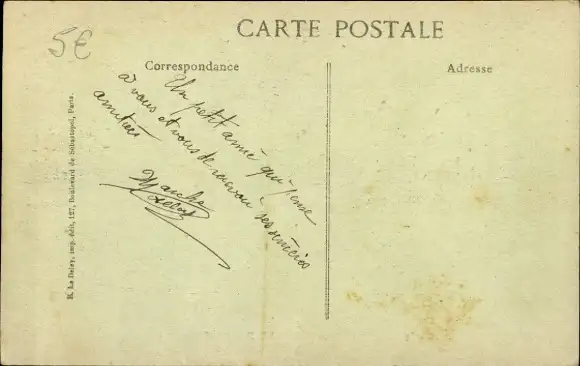 5€
CARTE POSTALE
Correspondance
Adresse
Un petit amie qui pense
à vous et vous de ses sincères
amitiés
E. Le Deley, imp. édit., 127, Boulevard de Sébastopol, Paris.